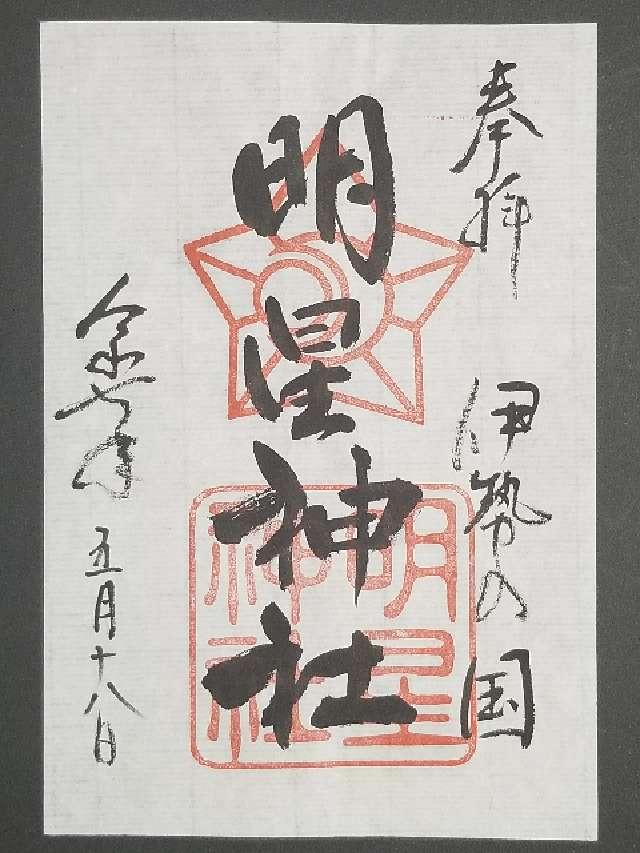 奉拝
伊勢の国
明星神社
明星
神社
令和七年
五月十八日